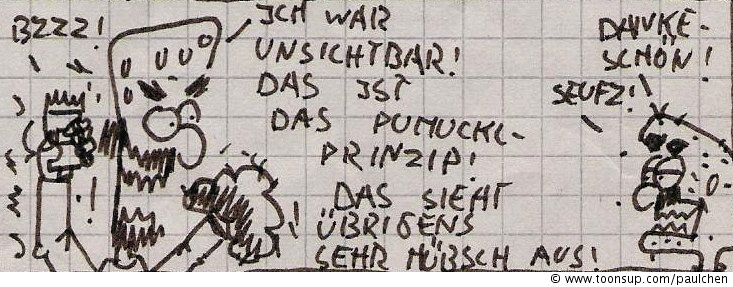 BZZZ!
ICH WAR
UNSICHTBAR!
DAS IST
DAS PUMUCKL-
PRINZIP!
DAS SIEHT
ÜBRIGENS
SEHR HÜBSCH AUS!
DANKE-
SCHÖN!
SEUFZ!
© www.toonsup.com/paulchen